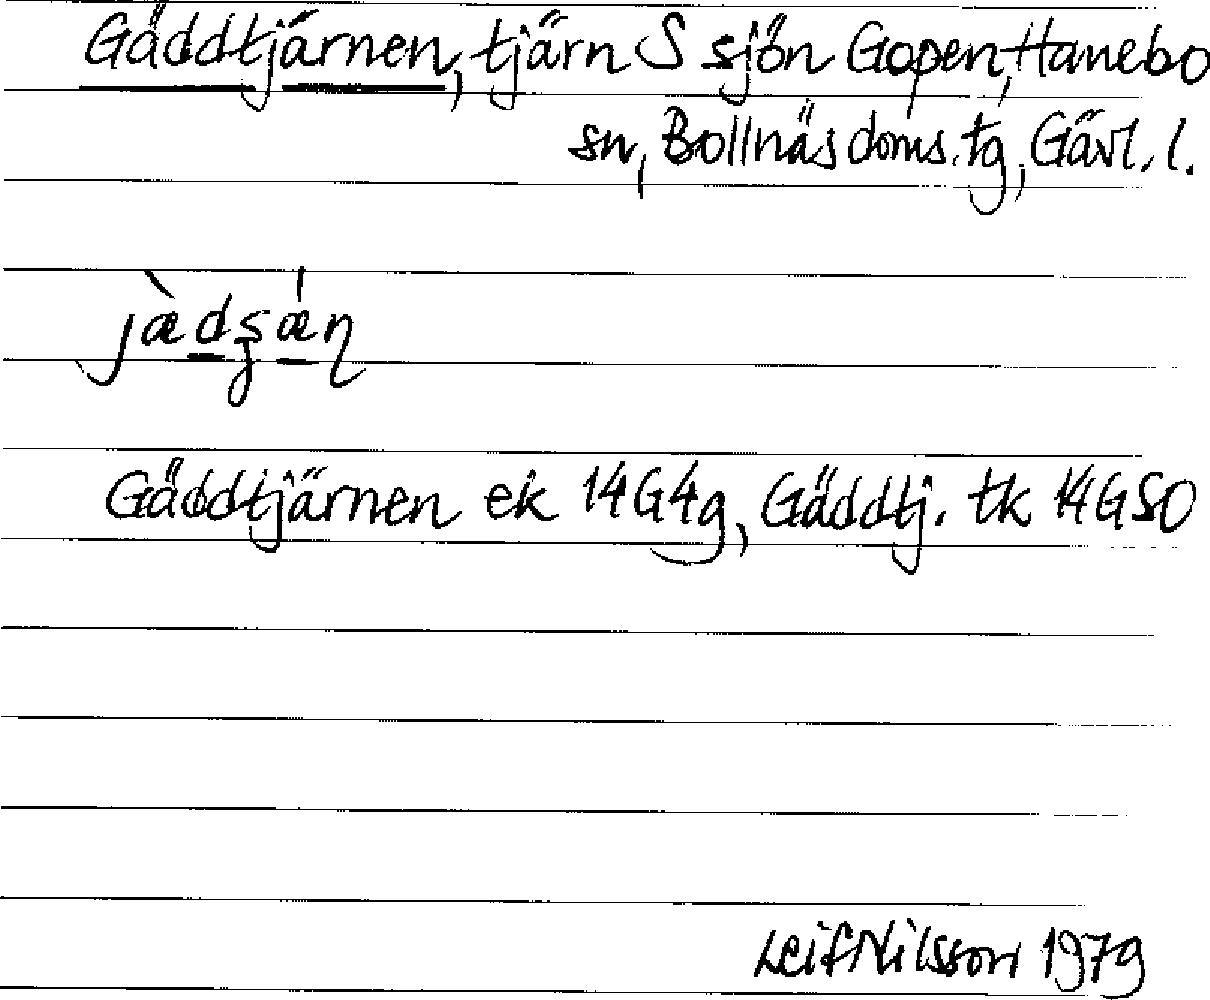 Gäddtjärnen, tjärn S sjön Gopen, Hanebo
sn, Bollnäs doms. tg, Gävl. l.
jæ̀dʂǽn̥
Gäddtjärnen ek 14G4g, Gäddtj. tk 14GSO
Leif Nilsson 1979